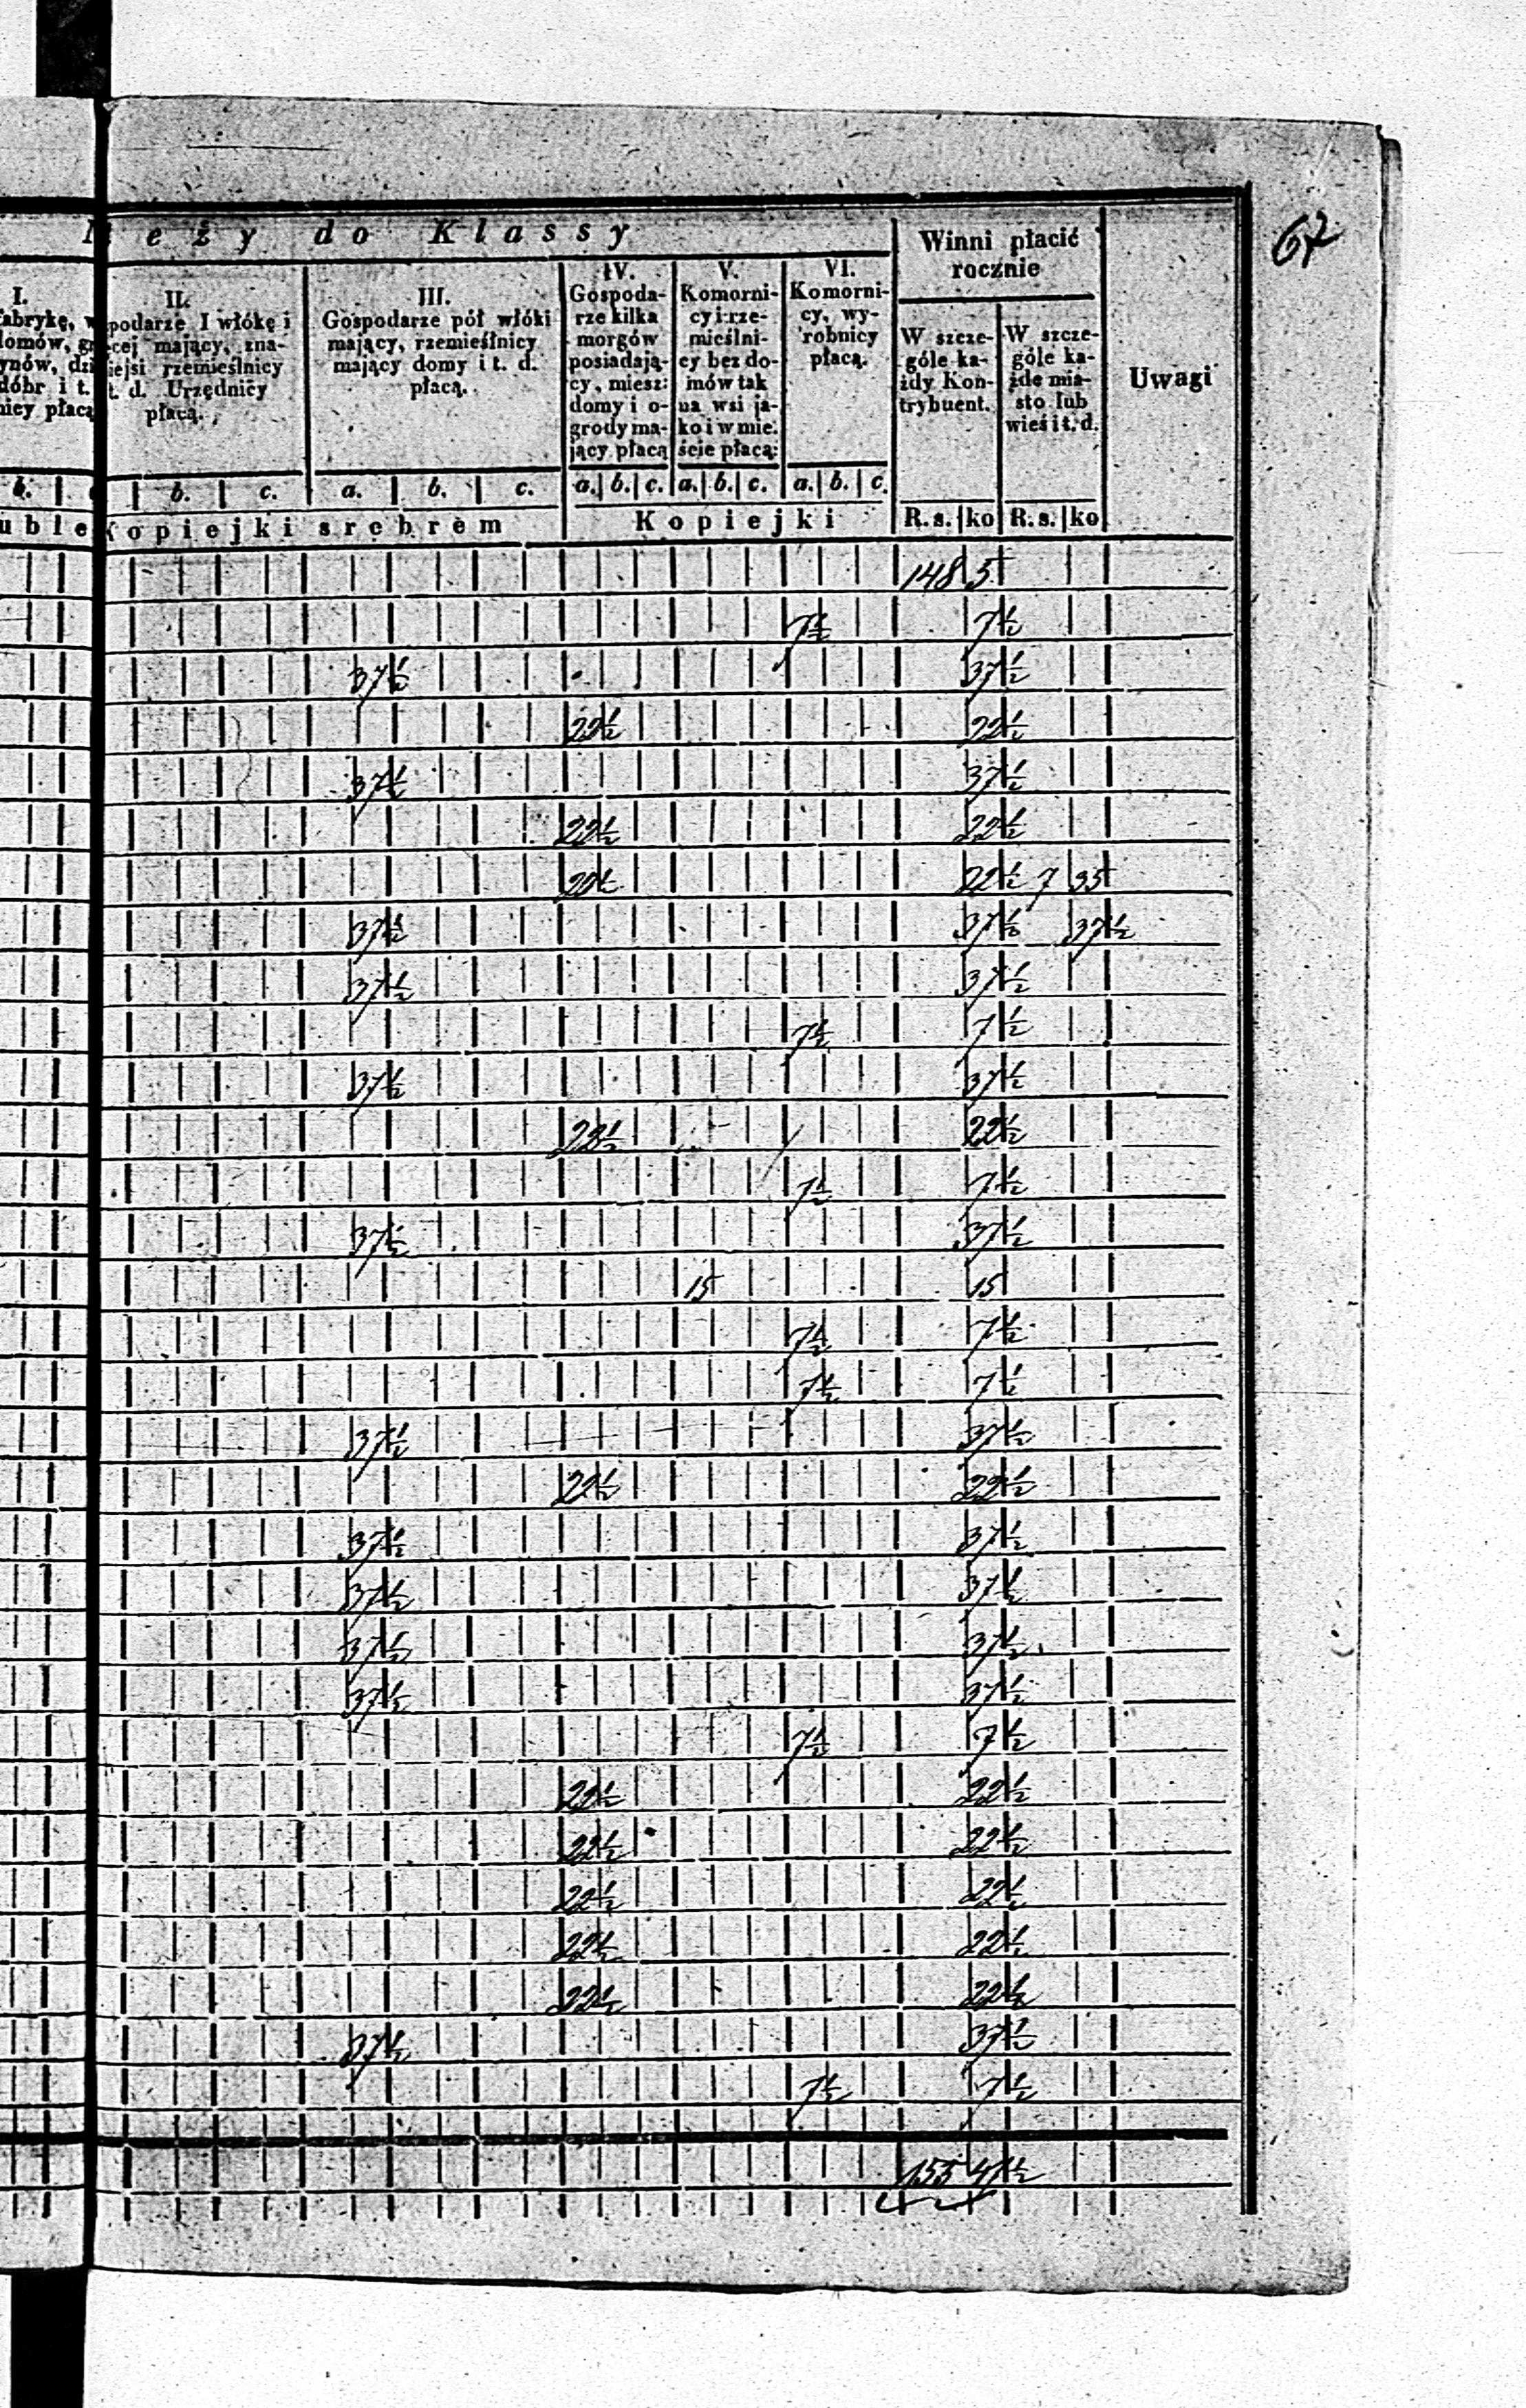 67
eży do Klassy
Winni płacić
rocznie
Uwagi
I.
fabrykę, w
domów,
ynów,
dóbr i t.
nicy płacą
II.
podarze I włókę i
cej mający, zna-
iejsi rzemieślnicy
t. d. Urzędnicy
płacą.
III.
Gospodarze pół włóki
mający, rzemieślnicy
mający domy i t. d.
płacą.
IV.
Gospoda-
rze kilka
morgów
posiadają-
cy, miesz:
domy i o-
grody ma-
jący płacą
V.
Komorni-
cy i rze-
mieślni-
cy bez do-
mów tak
na wsi ja-
ko i w mie:
ście płacą:
VI.
Komorni-
cy, wy-
robnicy
płacą.
W szcze-
góle ka-
żdy Kon-
trybuent.
W szcze-
góle ka-
żde mia-
sto lub
wieś i t. d.
b. b. c. a. b. c. a. b. c. a. b. c. a. b. c.
uble Kopiejki srebrem Kopiejki R. s. ko R. s. ko
148 5
7½ 7½
37½ 37½
22½ 22½
37½ 37½
22½ 22½
22½ 22½ 7 35
37½ 37½ 37½
37½ 37½
7½ 7½
37½ 37½
22½ 22½
7½ 7½
37½ 37½
15 15
7½ 7½
7½ 7½
37½ 37½
22½ 22½
37½ 37½
37½ 37½
37½ 37½
37½ 37½
7½ 7½
22½ 22½
22½ 22½
22½ 22½
22½ 22½
22½ 22½
37½ 37½
7½ 7½
155 47½